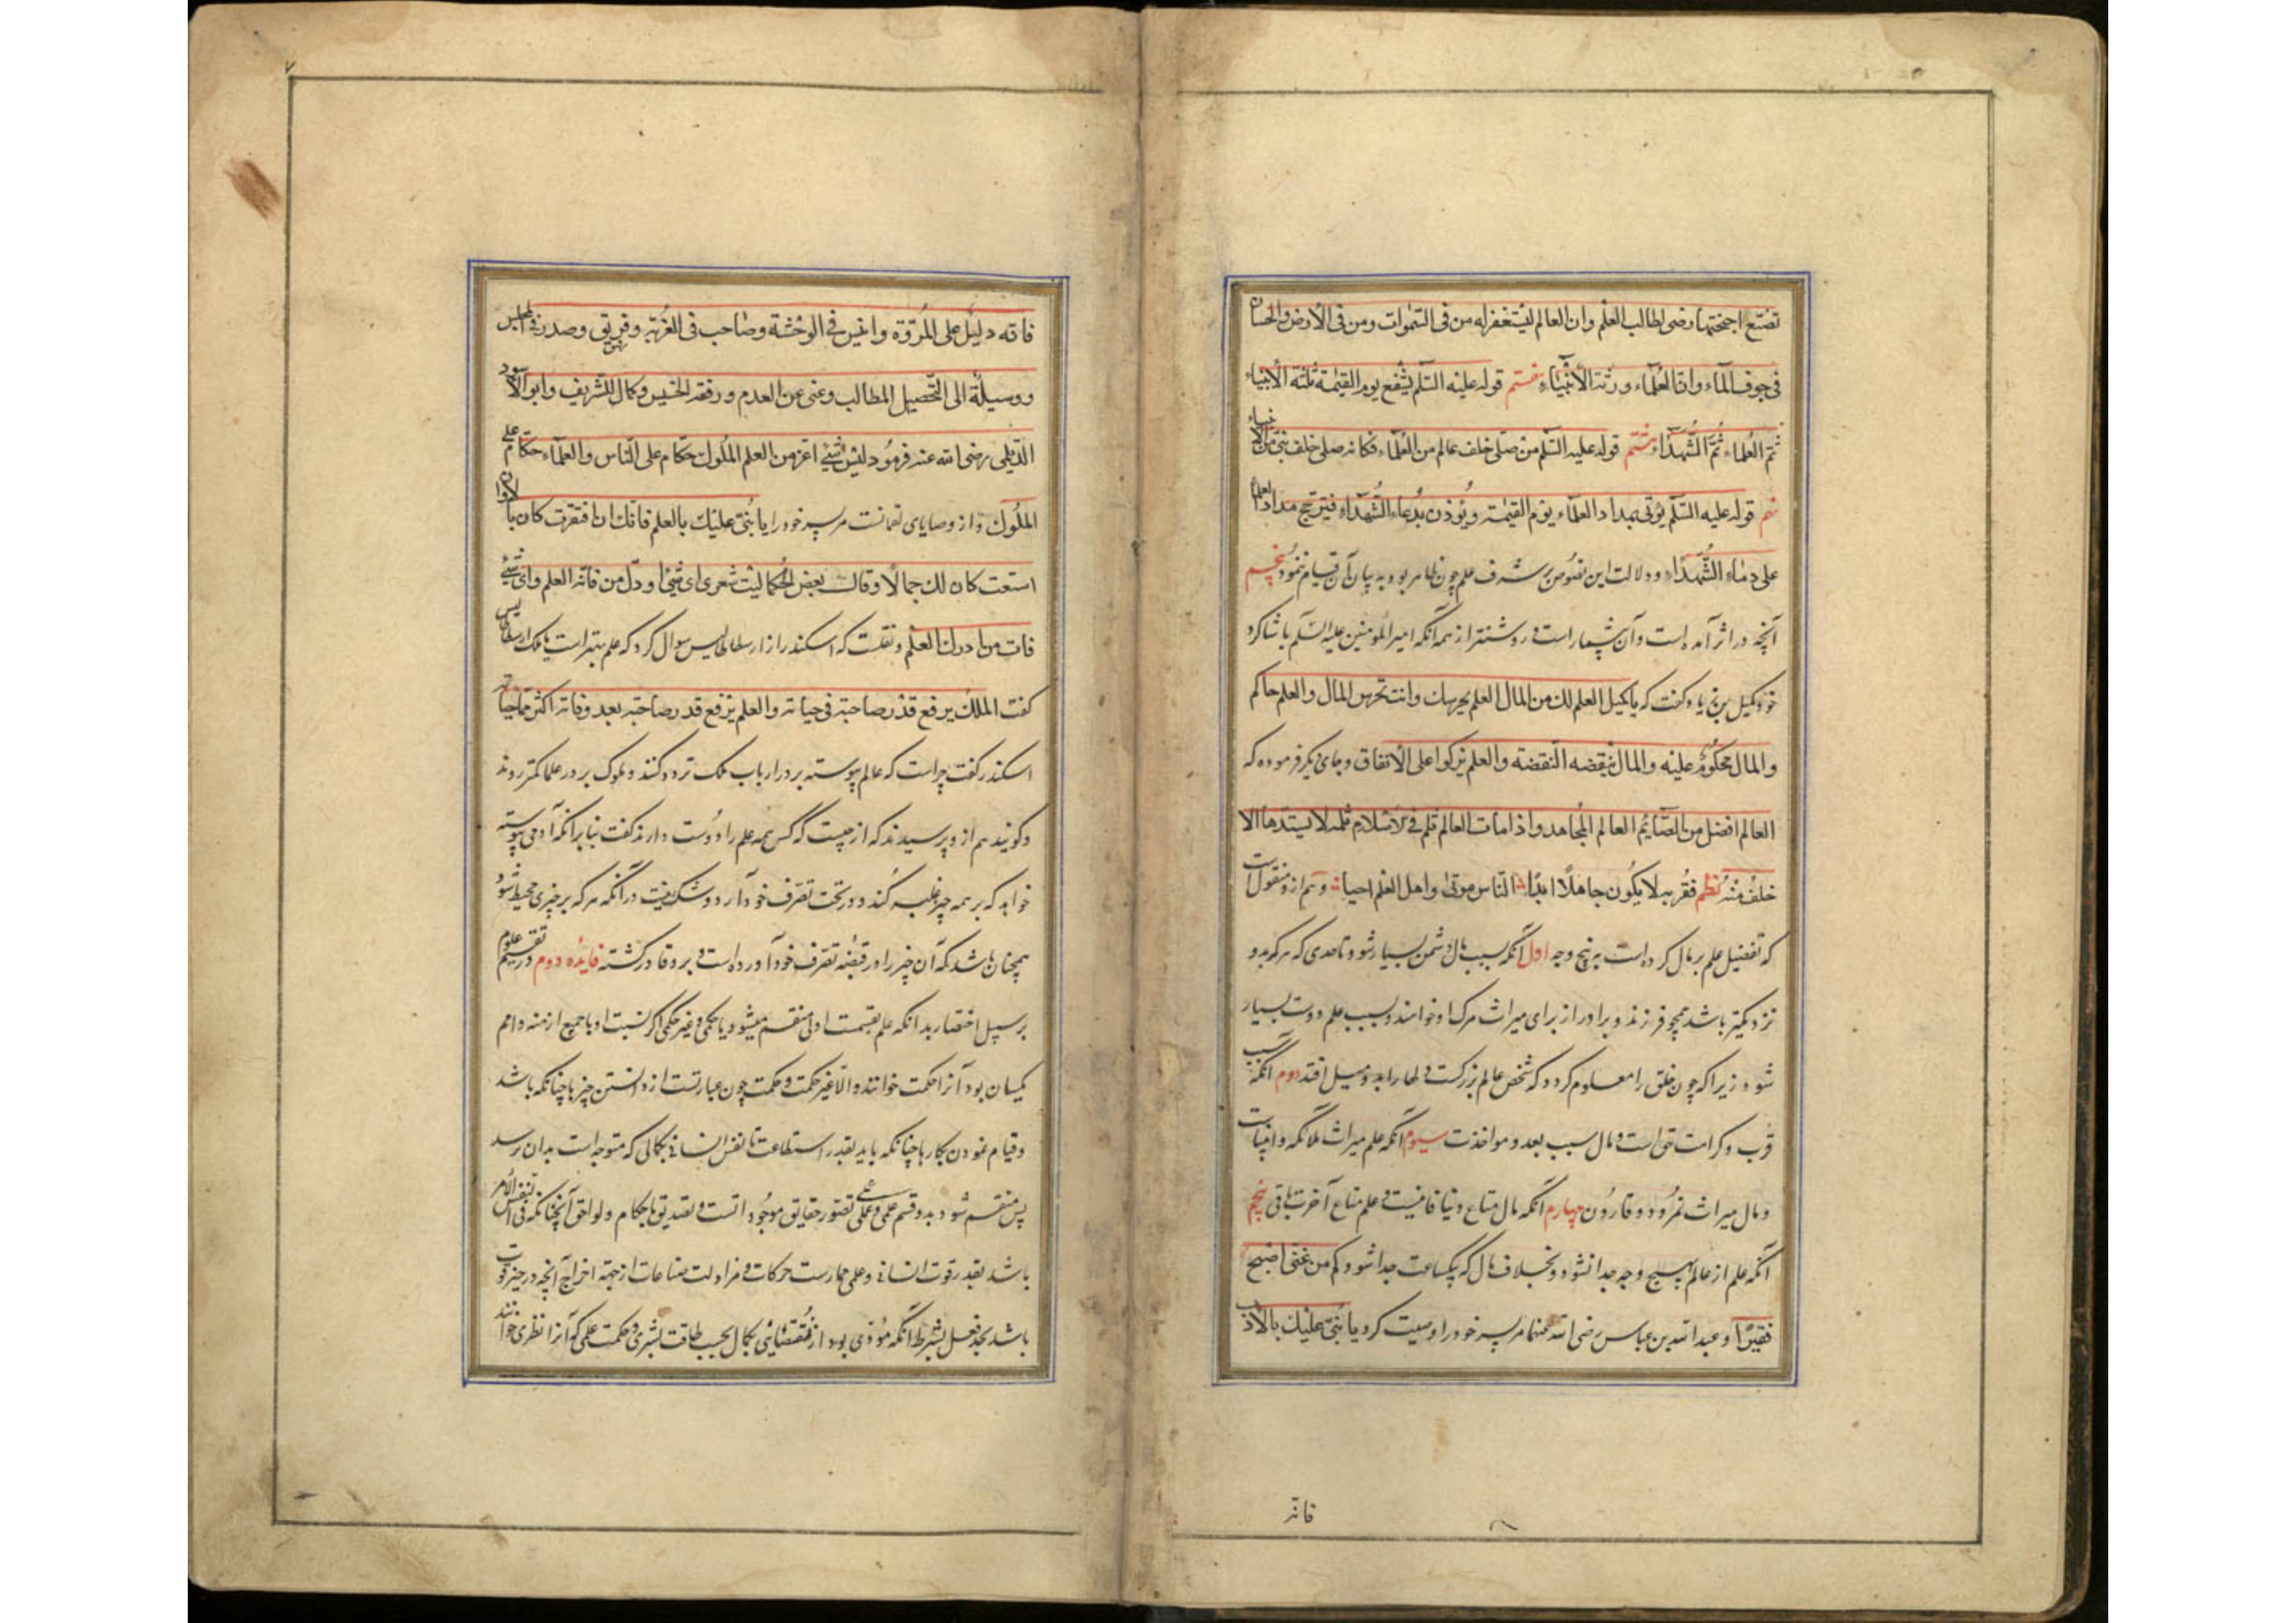 تضع اجنحتها رضی لطالب العلم وان العالم لیستغفر له من فی السموات ومن فی الأرض والحیتان
فی جوف المآء وان العلمآء ورثة الأنبیآء هفتم قوله علیه السلم یشفع یوم القیمة ثلثة الأنبیاء
ثم العلماء ثم الشهدآء هشتم قوله علیه السلم من صلی خلف عالم من العلمآء فکانه صلی خلف نبی من الأنبیاء
نهم قوله علیه السلم یؤتی بمداد العلمآء یوم القیمة ویؤذن بدمآء الشهدآء فیترجح مداد العلمآء
علی دمآء الشهدآء ودلالت این نصوص بر شرف علم چون ظاهر بود به بیان آن قیام ننمود پنجم
آنچه در اثر آمده است و آن بیشمار است و روشنتر از همه آنکه امیر المؤمنین علیه السلم با شاکرد
خود کمیل بن زیاد کفت که یا کمیل العلم لك من المال العلم یحرسك وانت تحرس المال والعلم حاکم
والمال محکوم علیه والمال ینقصه النقصة والعلم یزکوا علی الأنفاق وجای دیکر فرموده که
العالم افضل من الصایم العالم المجاهد واذا مات العالم ثلم فی الأسلام ثلمة لا یسدها الا
خلف منه نظم فقر به لا یکون جاهلا ابدا الناس موتی واهل العلم احیا وهم ازو منقول
که تفضیل علم بر مال کرده است به پنج وجه اول آنکه بسبب مال دشمن بسیار شود تا حدی که هر که بدو
نزدیکتر باشد همچو فرزند و برادر از برای میراث مرک او خواهند و بسبب علم دوست بسیار
شود زیرا که چون خلق را معلوم کردد که شخص عالم بزرکست دلها را بدو میل افتد دوم آنکه سبب
قرب و کرامت حق است و مال سبب بعد و مواخذت سیوم آنکه علم میراث ملائکه و انبیاست
و مال میراث نمرود و قارون چهارم آنکه مال متاع دنیا فانیست و علم متاع آخرت باقی پنجم
آنکه علم از عالم بهیچ وجه جدا نشود و بخلاف مال که بیکساعت جدا شود و کم من غنی اصبح
فقیرا و عبد الله بن عباس رضی الله عنهما مر پسر خود را وصیت کرد یا بنی علیك بالأدب
فانه
فانه دلیل علی المروة وانیس فی الوحشة وصاحب فی الغربة ورفیق وصدر فی المجلس
ووسیلة الی التحصیل المطالب وغنی عن العدم ورفعة الخسیس وکمال للشریف وابو الأسود
الدیلی رضی الله عنه فرمود لیس شیئ اعز من العلم الملوك حکام علی الناس والعلمآء حکام علی
الملوك و از وصایای لقمانست مر پسر خود را یا بنی علیك بالعلم فانك ان افتقرت کان مالا وان
استغنت کان لك جمالا وقال بعض الحکما لیت شعری ای شیئ ادرك من فاته العلم وای شیئ
فات من ادرك العلم و نقلست که اسکندر از ارسطاطالیس سوال کرد که علم بهتر است یا ملک ارسطاطالیس
کفت الملك یرفع قدر صاحبه فی حیاته والعلم یرفع قدر صاحبه بعد وفاته اکثر مما حیاته
اسکندر کفت چراست که عالم پیوسته بر در ارباب ملک تردد کنند و ملوک بر در علما کمتر روند
و کویند هم از و پرسیدند که از چیست که کس همه علم را دوست دارند کفت بنا بر آنکه آدمی پیوسته
خواهد که بر همه چیز غلبه کند و در تحت تصرف خود آرد و شک نیست در آنکه هر که بر چیزی محیط شود
همچنان باشد که آن چیز را در قبضه تصرف خود آورده است و برو قادر کشته فایده دوم در تقسیم علوم
بر سبیل اختصار بدانکه علم بقسمت اولی منقسم میشود یا حکمی و غیر حکمی اکر نسبت او با جمیع ازمنه و امم
یکسان بود آنرا حکمت خوانند و الا غیر حکمت و حکمت چون عبارتست از دانستن چیزها چنانکه باشد
و قیام نمودن بکارها چنانکه باید بقدر استطاعت تا نفس انسانی بکمالی که متوجه است بدان رسد
پس منقسم شود بدو قسم علمی و عملی علمی تصور حقایق موجودات است و تصدیق باحکام و لواحق آن چنانکه فی نفس الأمر
باشد بقدر قوت انسانی و عملی ممارست حرکات و مزاولت صناعات از جهة اخراج آنچه در حیز قوت
باشد بحد فعل بشرط آنکه مؤدی بود از نقصانی بکمال بحسب طاقت بشری و حکمت علمی که آنرا نظری خوانند